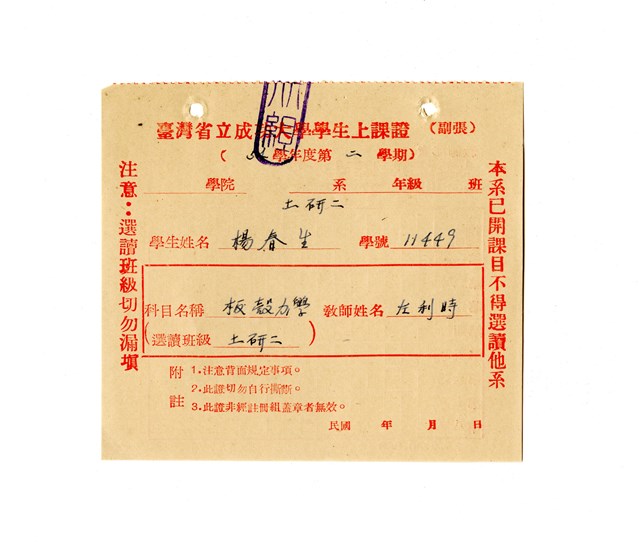 臺灣省立成功大學學生上課證(副張)
(學年度第二學期)
學院 系 年級 班
土研二
學生姓名 楊春生 學號 11449
科目名稱 板殼力學 教師姓名 左利時
(選讀班級 土研二)
附註
1.注意背面規定事項。
2.此證切勿自行撕斷。
3.此證非經註冊組蓋章者無效。
民國 年 月 日
注意:選讀班級切勿漏填
本系已開課目不得選讀他系